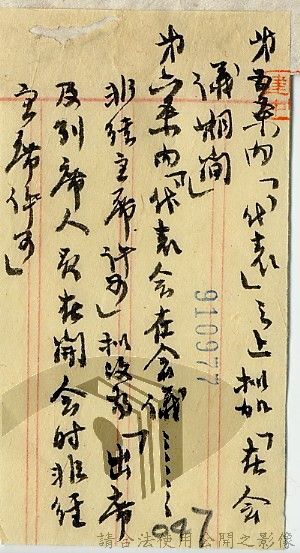 第五条内「代表」之上拟加「在会
议期间」
第六条内「代表会在会议……
非经主席许可」拟改为「出席
及列席人员在开会时非经
主席许可」
910977
047
請合法使用公開之影像